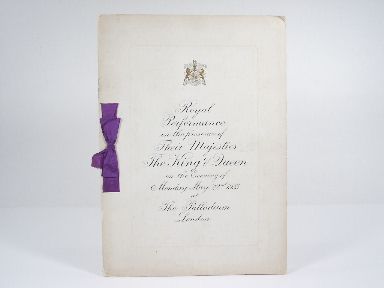 Royal
Performance
in the presence of
Their Majesties
The King & Queen
on the Evening of
Monday May 22nd 1933
at
The Palladium
London